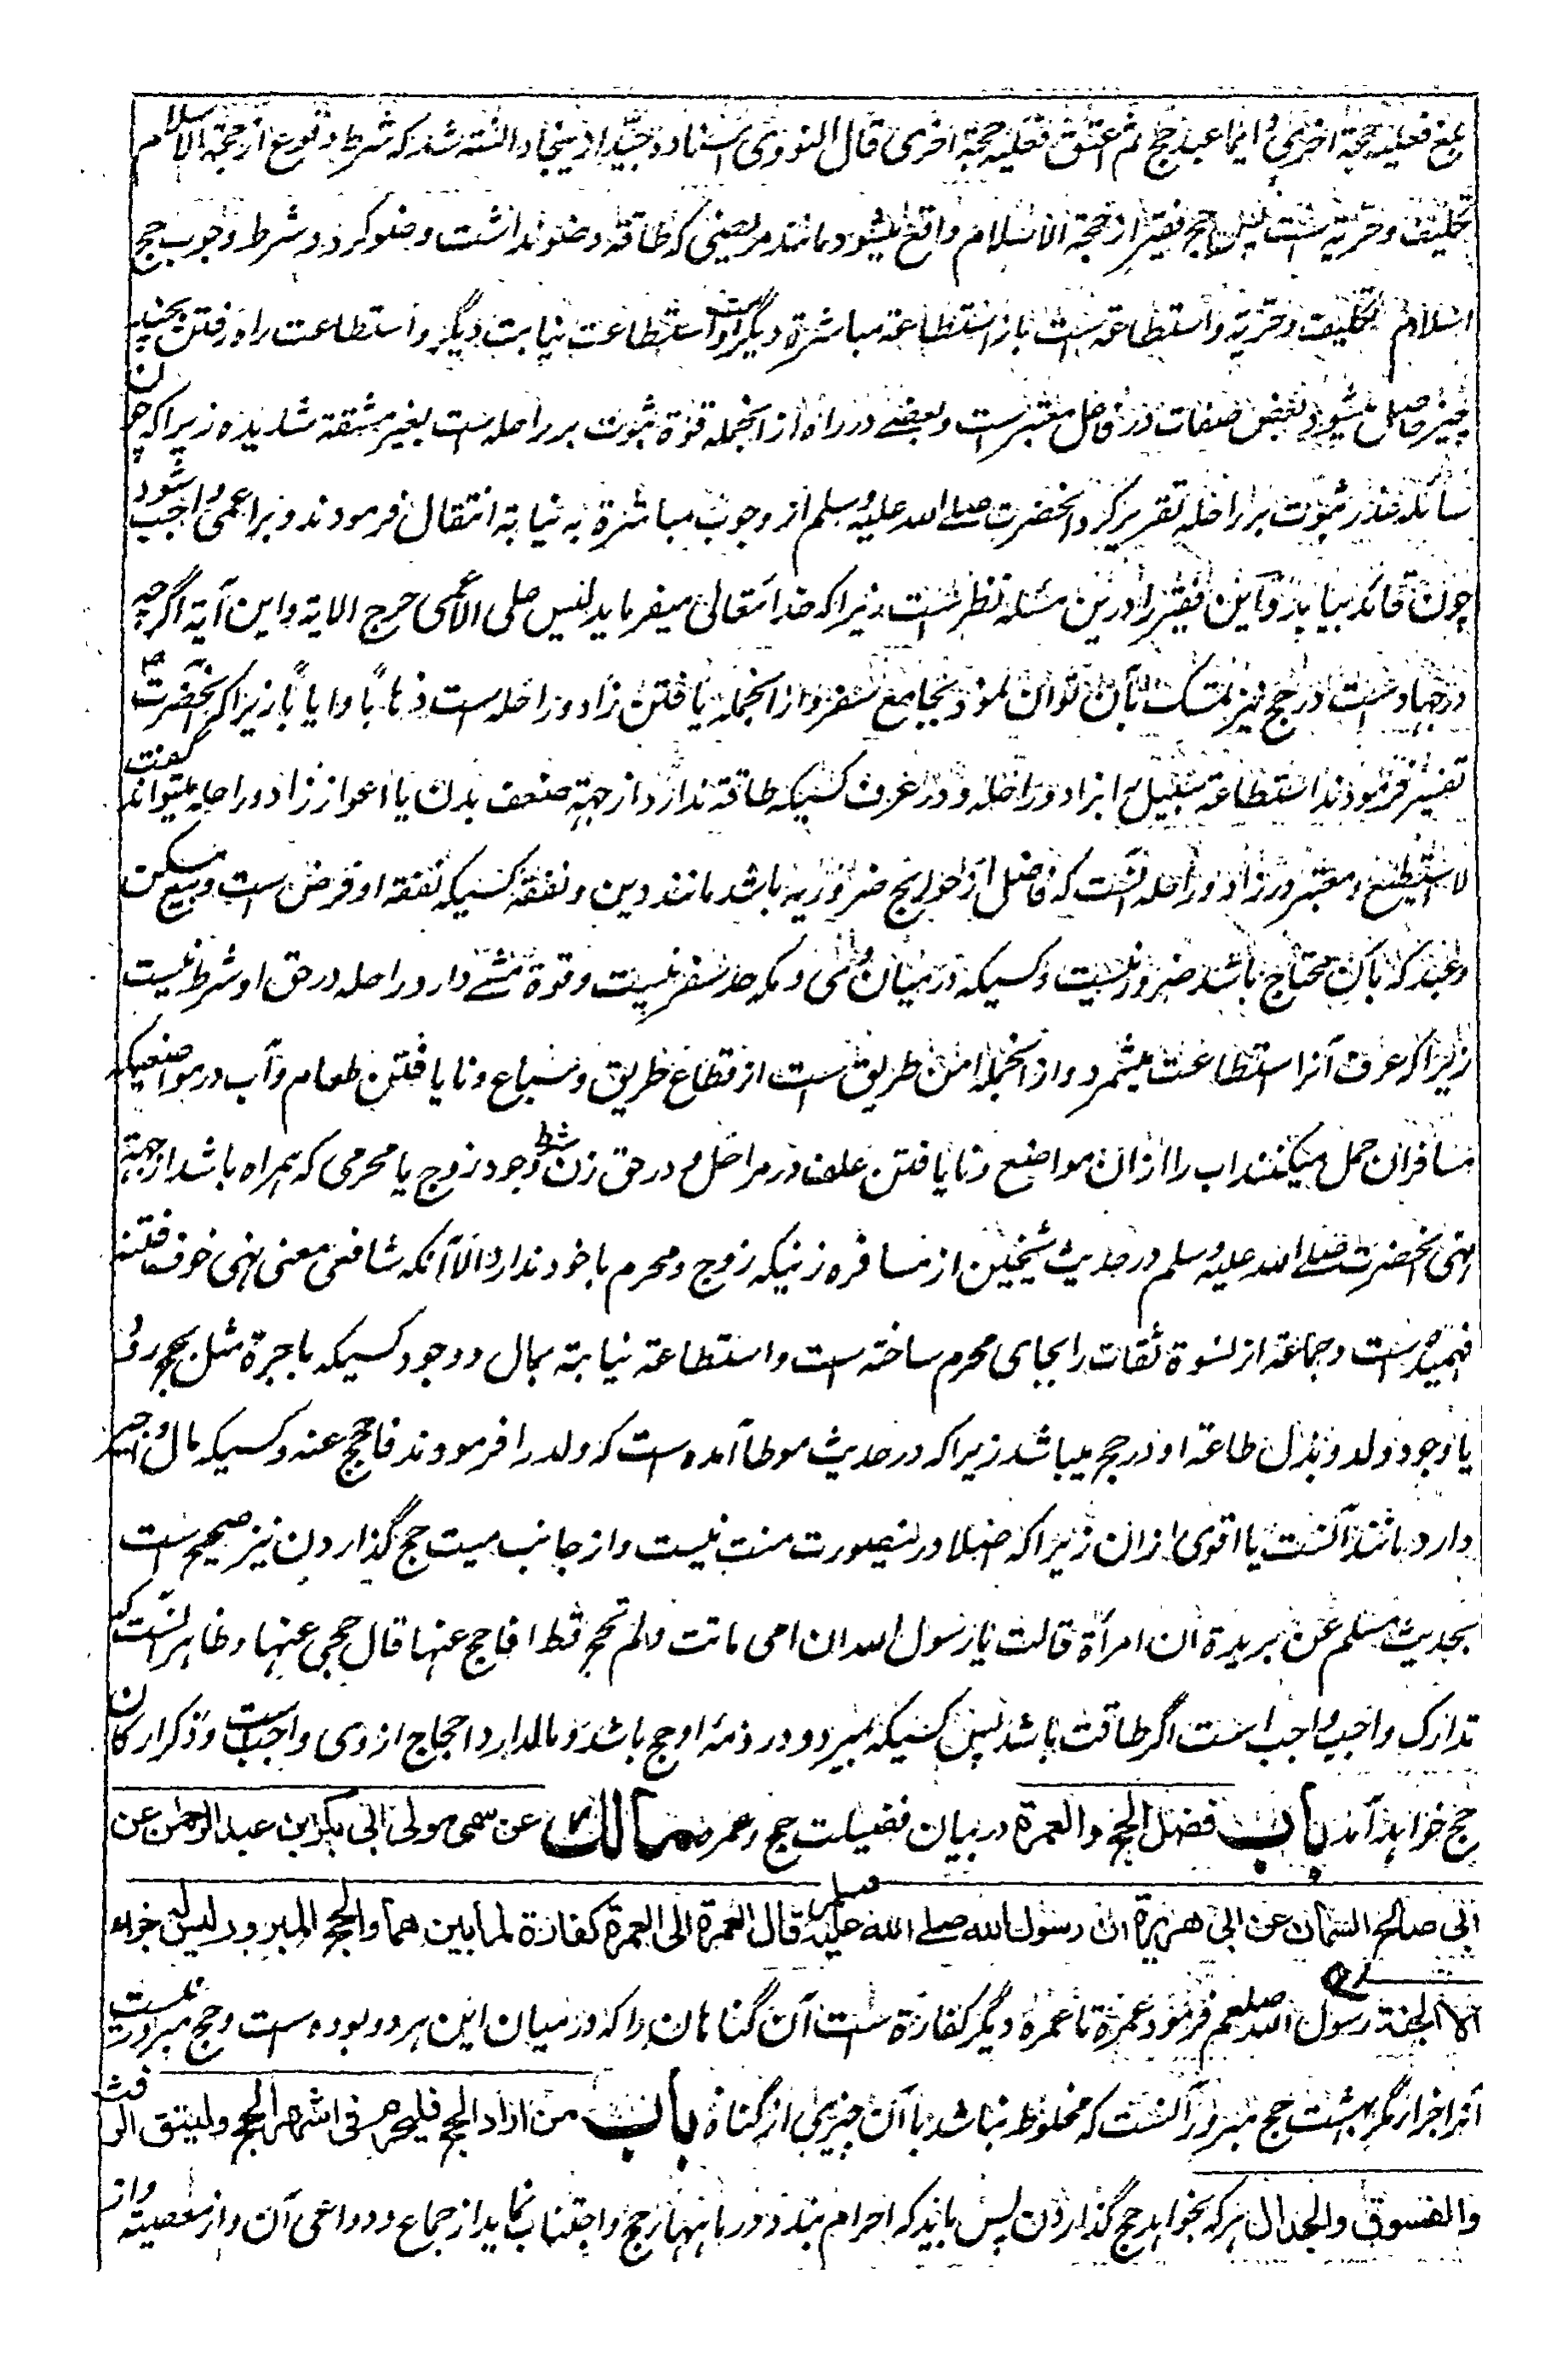 بلغ فعلیه حجة اخری و ایما عبد حج ثم اعتق فعلیه حجة اخری قال النووی اسناده جید از ینجا دانسته شد که شرط وقوع از حجة الاسلام
تکلیف و حریة ست پس حج فقیر از حجة الاسلام واقع میشود مانند مریضی که طاقة وضو نداشت و وضو کرد و شرط وجوب حج
اسلام تکلیف و حریة و استطاعة ست باز استطاعة مباشرة دیگر است و استطاعت نیابت دیگر و استطاعت راه رفتن بچند
چیز حاصل میشود بعض صفات در فاعل معتبر ست و بعضے در راه از انجمله قوة ثبوت بر راحله ست بغیر مشقة شدیده زیرا که چون
سائله عذر ثبوت بر راحله تقریر کرد آنحضرت صلے الله علیه وسلم از وجوب مباشرة به نیابة انتقال فرمودند و بر اعمی واجب شود
چون قائد بیابد و این فقیر را درین مسئله نظر ست زیرا که خدا تعالی میفرماید لیس علی الاعمی حرج الایة و این آیة اگرچه
در جهاد ست در حج نیز تمسک بآن توان نمود بجامع سفر و از انجمله یافتن زاد و راحله ست ذهابا و ایابا زیرا که آنحضرت ص
تفسیر فرمودند استطاعة سبیل را بزاد و راحله و در عرف کسیکه طاقة ندارد از جهة ضعف بدن یا اعواز زاد و راحله میتواند گفت
لا استطیع و معتبر در زاد و راحله آنست که فاضل از حوایج ضروریه باشد مانند دین و نفقة کسیکه نفقه او فرض ست و بیع مسکن
و عبد که بآن محتاج باشد ضرور نیست و کسیکه در میان وی و مکه حد سفر نیست و قوة مشے دارد راحله در حق او شرط نیست
زیرا که عرف آنرا استطاعت میشمرد و از انجمله امن طریق ست از قطاع طریق و سباع و نا یافتن طعام و آب در مواضعیکه
مسافران حمل میکنند اب را ازان مواضع و نا یافتن علف در مراحل و در حق زن شرط وجود زوج یا محرمی که همراه باشد از جهة
نهی آنحضرت صلے الله علیه وسلم در حدیث شیخین از مسافره زنیکه زوج و محرم با خود ندارد الا آنکه شافعی معنی نهی خوف فتنه
فهمیده ست و جماعة از نسوة ثقات را بجای محرم ساخته ست و استطاعة نیابة بمال و وجود کسیکه باجرة مثل بحج رود
یا وجود ولد و بذل طاعة او در حج میباشد زیرا که در حدیث موطا آمده ست که ولد را فرمودند فاحجج عنه و کسیکه مال و اجیر
دارد مانند آنست یا اقوی ازان زیرا که اصلا درینصورت منت نیست و از جانب میت حج گذاردن نیز صحیح ست
بحدیث مسلم عن بریدة ان امرأة قالت یا رسول الله ان امی ماتت ولم تحج قط افاحج عنها قال حجی عنها و ظاهر آنست که
تدارک واجب واجب است اگر طاقت باشد پس کسیکه بمیرد و در ذمۀ او حج باشد و مال دارد احجاج از وی واجب ست و ذکر ارکان
حج خواهد آمد باب فضل الحج والعمرة در بیان فضیلت حج و عمره مالك عن سمی مولی ابی بکر بن عبد الرحمن عن
ابی صالح السمان عن ابی هریرة ان رسول الله صلے الله علیه وسلم قال العمرة الی العمرة کفارة لما بینهما والحج المبرور لیس له جزاء
الا الجنة رسول الله صلعم فرمود عمرة تا عمره دیگر کفارة ست آن گناهان را که در میان این هر دو بوده ست و حج مبرور نیست
آنرا جزا مگر بهشت حج مبرور آنست که مخلوط نباشد با آن چیزی از گناه باب من اراد الحج فلیحرم فی اشهر الحج ولیتق الرفث
والفسوق والجدال هرکه بخواهد حج گذاردن پس باید که احرام بندد در ماههای حج و اجتناب نماید از جماع و دواعی آن و از معصیة و از